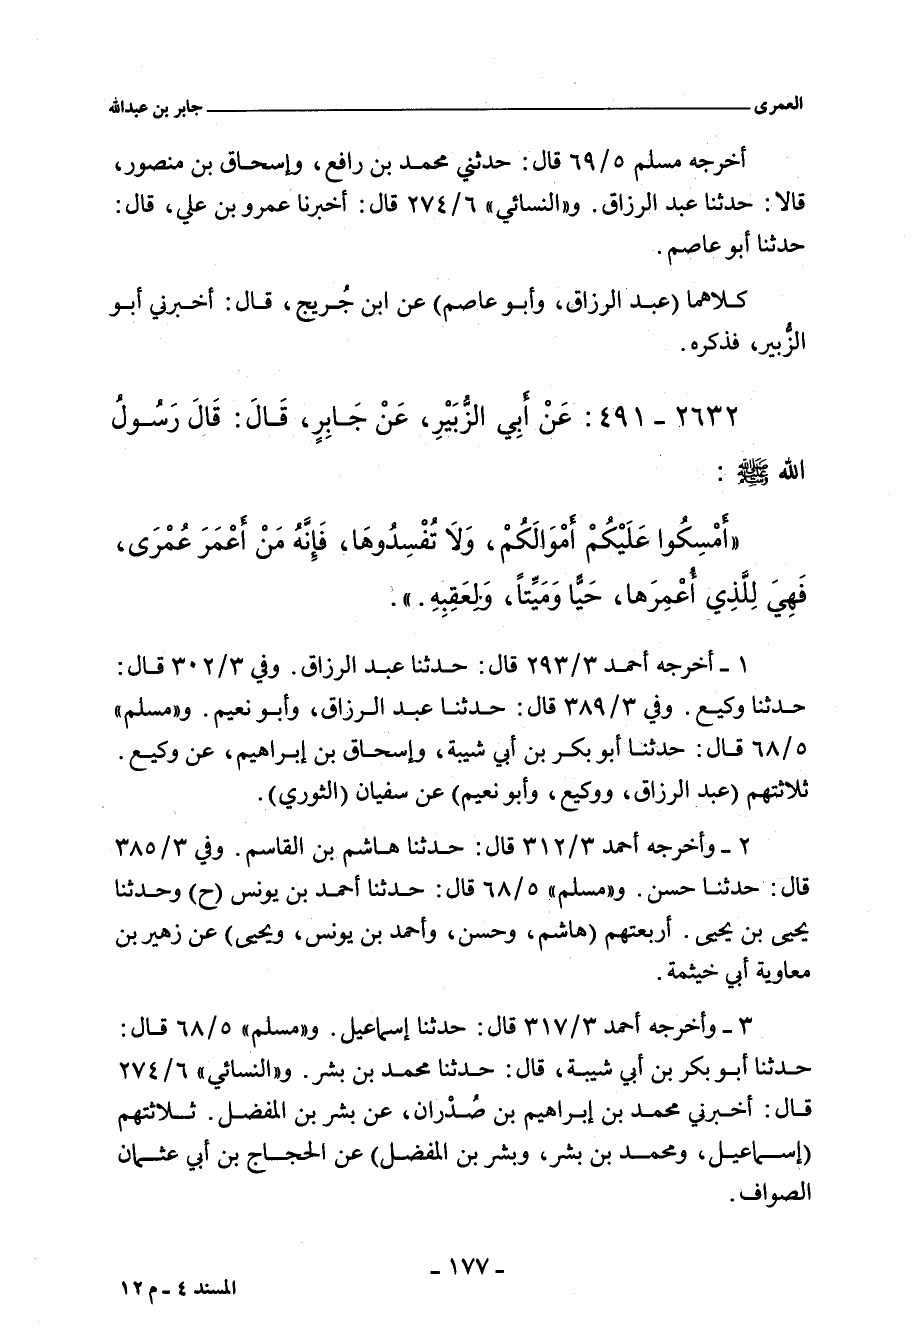 العمرى ـــــــــــــــــــــــــــــــــــــــــ جابر بن عبدالله
أخرجه مسلم ٦٩/٥ قال: حدثني محمد بن رافع، وإسحاق بن منصور،
قالا: حدثنا عبد الرزاق. و«النسائي» ٢٧٤/٦ قال: أخبرنا عمرو بن علي، قال:
حدثنا أبو عاصم.
كلاهما (عبد الرزاق، وأبو عاصم) عن ابن جُريج، قال: أخبرني أبو
الزُّبير، فذكره.
٢٦٣٢ - ٤٩١: عَنْ أَبِي الزُّبَيْرِ، عَنْ جَابِرٍ، قَالَ: قَالَ رَسُولُ
الله ﷺ:
«أَمْسِكُوا عَلَيْكُمْ أَمْوَالَكُمْ، وَلَا تُفْسِدُوهَا، فَإِنَّهُ مَنْ أَعْمَرَ عُمْرَى،
فَهِيَ لِلَّذِي أُعْمِرَها، حَيًّا وَمَيِّتاً، وَلِعَقِبِهِ.».
١ - أخرجه أحمد ٢٩٣/٣ قال: حدثنا عبد الرزاق. وفي ٣٠٢/٣ قال:
حدثنا وكيع. وفي ٣٨٩/٣ قال: حدثنا عبد الرزاق، وأبو نعيم. و«مسلم»
٦٨/٥ قال: حدثنا أبو بكر بن أبي شيبة، وإسحاق بن إبراهيم، عن وكيع.
ثلاثتهم (عبد الرزاق، ووكيع، وأبو نعيم) عن سفيان (الثوري).
٢ - وأخرجه أحمد ٣١٢/٣ قال: حدثنا هاشم بن القاسم. وفي ٣٨٥/٣
قال: حدثنا حسن. و«مسلم» ٦٨/٥ قال: حدثنا أحمد بن يونس (ح) وحدثنا
يحيى بن يحيى. أربعتهم (هاشم، وحسن، وأحمد بن يونس، ويحيى) عن زهير بن
معاوية أبي خيثمة.
٣ - وأخرجه أحمد ٣١٧/٣ قال: حدثنا إسماعيل. و«مسلم» ٦٨/٥ قال:
حدثنا أبو بكر بن أبي شيبة، قال: حدثنا محمد بن بشر. و«النسائي» ٢٧٤/٦
قال: أخبرني محمد بن إبراهيم بن صُدْران، عن بشر بن المفضل. ثلاثتهم
(إسماعيل، ومحمد بن بشر، وبشر بن المفضل) عن الحجاج بن أبي عثمان
الصواف.
- ١٧٧ -
المسند ٤ - م ١٢